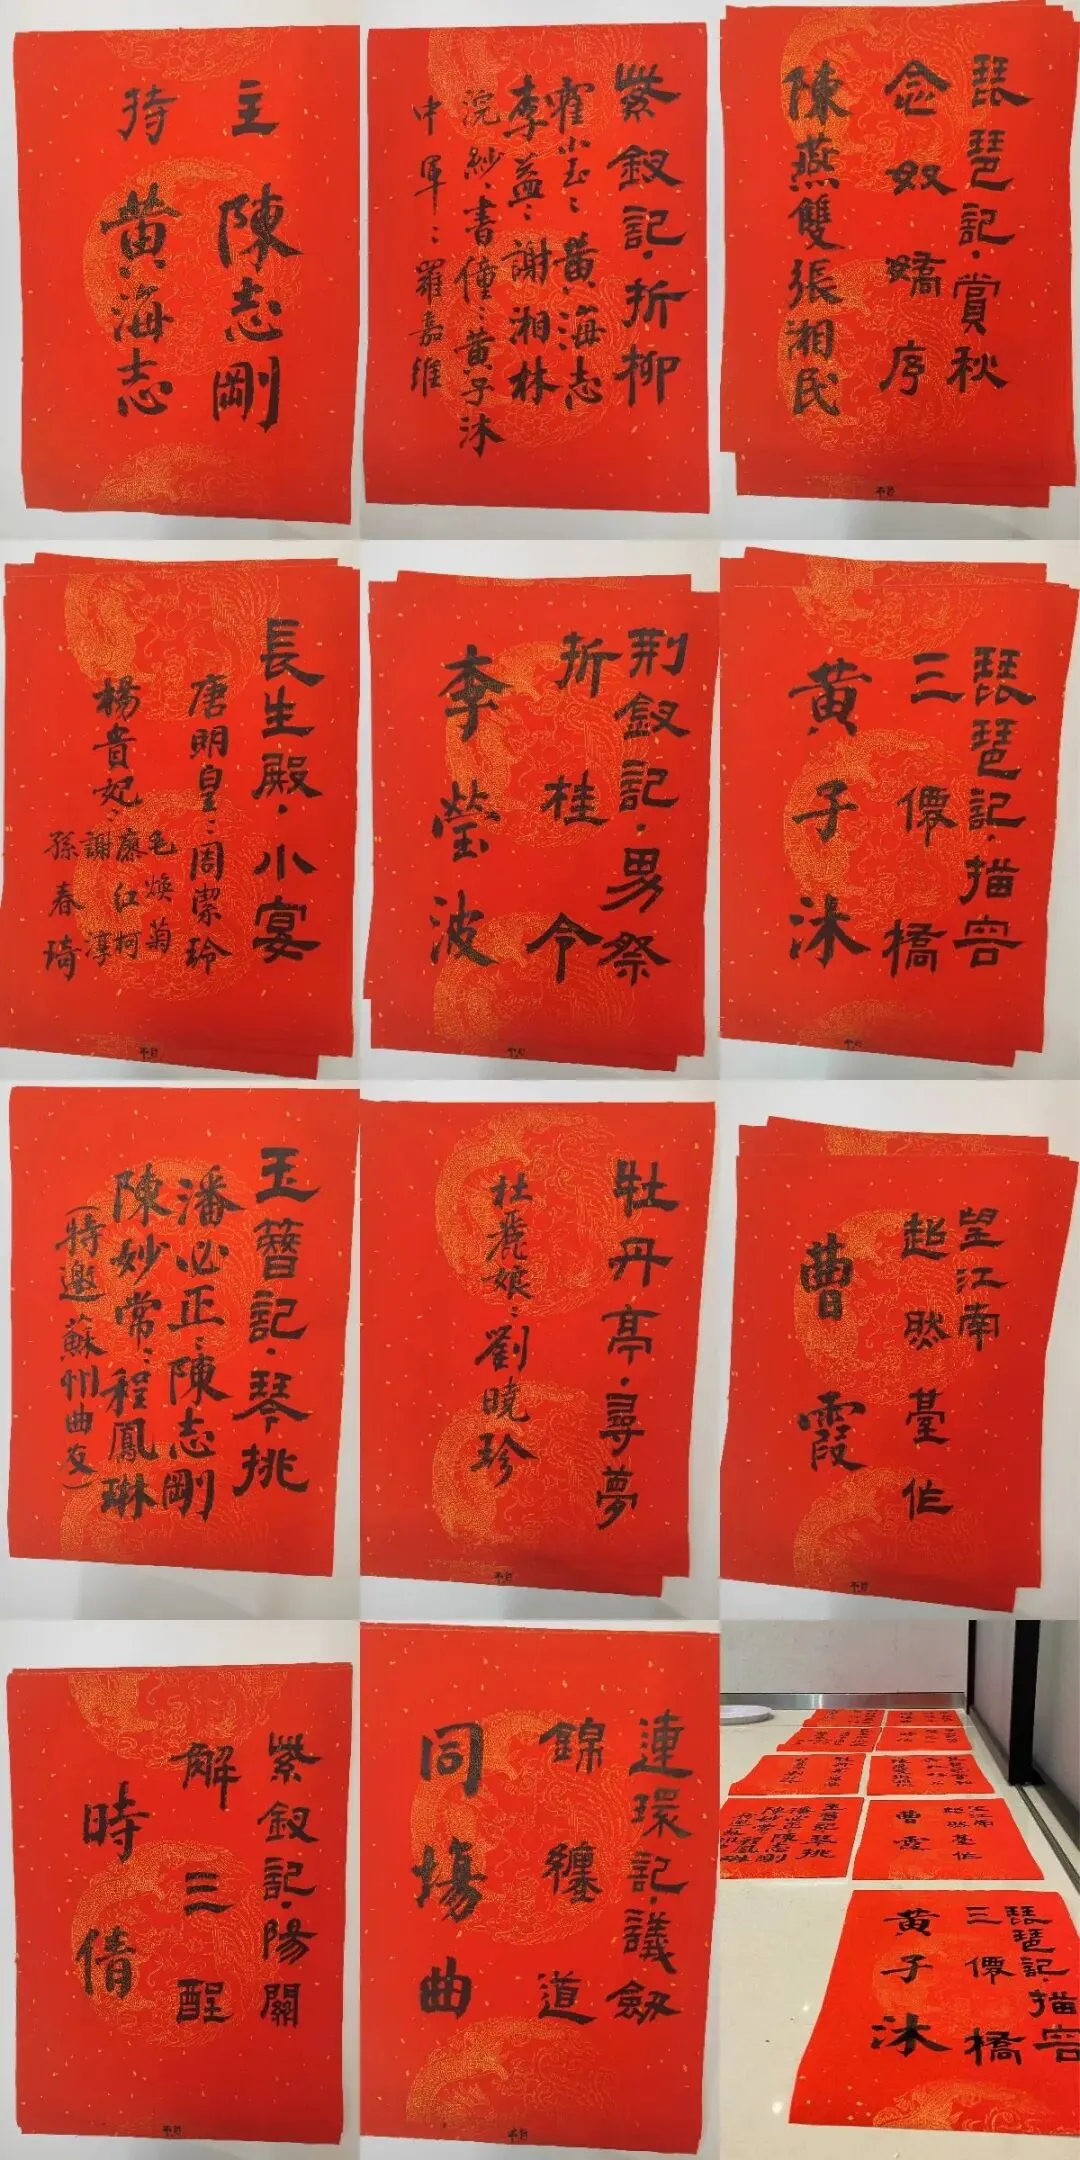 主持
陳志剛
黄海志
紫釵記·折柳
霍小玉：黄海志
李益：謝湘林
浣紗、書僮：黄子沐
中軍：羅嘉維
琵琶記·賞秋
念奴嬌序
陳燕雙張湘民
長生殿·小宴
唐明皇：周潔玲
楊貴妃：
毛煥菊
廖紅柯
謝淳
孫春琦
荆釵記·男祭
折桂令
李瑩波
琵琶記·描容
三僊橋
黄子沐
玉簪記·琴挑
潘必正：陳志剛
陳妙常：程鳳琳
（特邀蘇州曲友）
牡丹亭·尋夢
杜麗娘：劉曉珍
望江南
超然臺作
曹霞
紫釵記·陽關
解三酲
時倩
連環記·議劍
錦纏道
同場曲
玉簪記·琴挑
潘必正：陳志剛
望江南
超然臺作
曹霞
琵琶記·描容
三僊橋
黄子沐